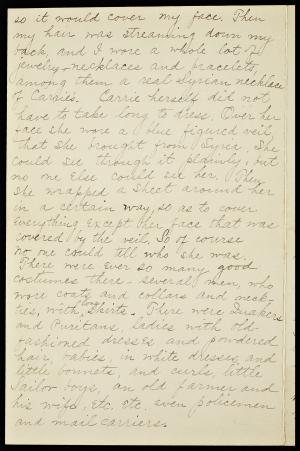 so it would cover my face. Then
my hair was streaming down my
back, and I wore a whole lot of
jewelry - necklaces and bracelets,
among them a real Syrian necklace
of Carrie's. Carrie herself did not
have to take long to dress. Over her
face she wore a blue figured veil,
that she brought from Syria. She
could see through it plainly, but
no one else could see her. Then
she wrapped a sheet around her
in a certain way so as to cover
everything except her face that was
covered by the veil. So of course
no one could till who she was.
There were ever so many good
costumes there - several men, who
wore coats and collars and neck-
ties, with long skirts. There were Quakers
and Puritans, ladies with old-
fashioned dresses and powdered
hair, babies, in white dresses and
little bonnets, and curls, little
Sailor boys, an old farmer and
his wife, etc. etc. even policemen
and mail carriers.